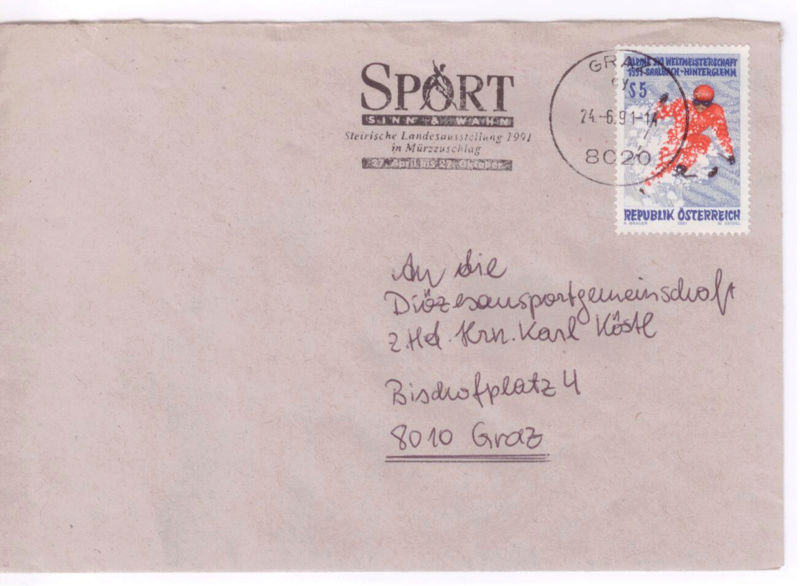 SPORT
SINN & WAHN
Steirische Landesausstellung 1991
in Mürzzuschlag
27. April bis 27. Oktober
GRAZ
24.-6.91-14
8020
ALPINE SKI WELTMEISTERSCHAFT
1991 SAALBACH-HINTERGLEMM
S 5
REPUBLIK ÖSTERREICH
1991
An die
Diözesansportgemeinschaft
z.Hd. Hrn. Karl Köstl
Bischofplatz 4
8010 Graz